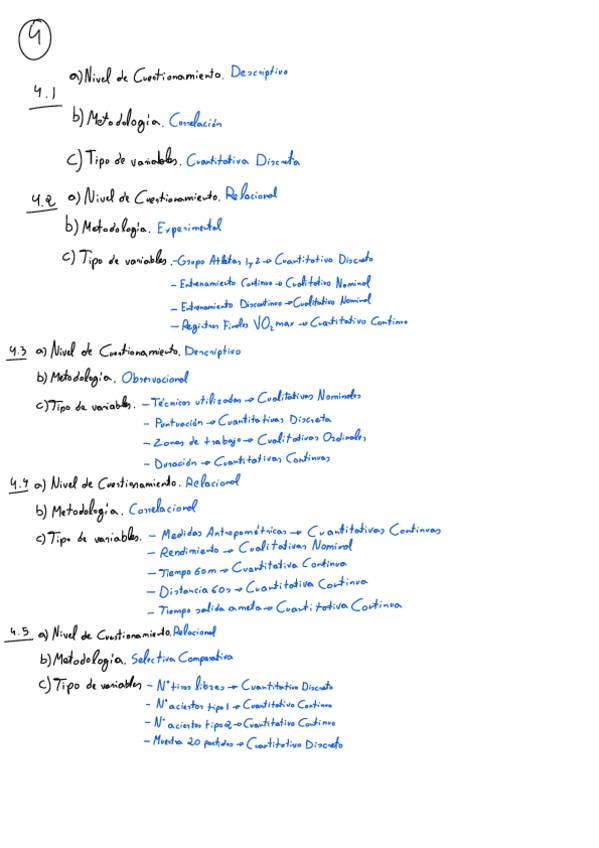 4
4.1 a) Nivel de Cuestionamiento. Descriptivo
b) Metodología. Correlación
c) Tipo de variables. Cuantitativa Discreta
4.2 a) Nivel de Cuestionamiento. Relacional
b) Metodología. Experimental
c) Tipo de variables. - Grupo Atletas 1 y 2 → Cuantitativo Discreto
- Entrenamiento Continuo → Cualitativo Nominal
- Entrenamiento Discontinuo → Cualitativo Nominal
- Registros Finales VO₂ max → Cuantitativo Continuo
4.3 a) Nivel de Cuestionamiento. Descriptivo
b) Metodología. Observacional
c) Tipo de variables. - Técnicas utilizadas → Cualitativas Nominales
- Puntuación → Cuantitativas Discreta
- Zonas de trabajo → Cualitativas Ordinales
- Duración → Cuantitativas Continuas
4.4 a) Nivel de Cuestionamiento. Relacional
b) Metodología. Correlacional
c) Tipo de variables. - Medidas Antropométricas → Cuantitativas Continuas
- Rendimiento → Cualitativas Nominal
- Tiempo 60m → Cuantitativa Continua
- Distancia 60s → Cuantitativa Continua
- Tiempo salida a meta → Cuantitativa Continua
4.5 a) Nivel de Cuestionamiento. Relacional
b) Metodología. Selectiva Comparativa
c) Tipo de variables - Nº tiros libres → Cuantitativo Discreto
- Nº aciertos tipo 1 → Cuantitativo Continuo
- Nº aciertos tipo 2 → Cuantitativo Continuo
- Muestra 20 partidos → Cuantitativo Discreto